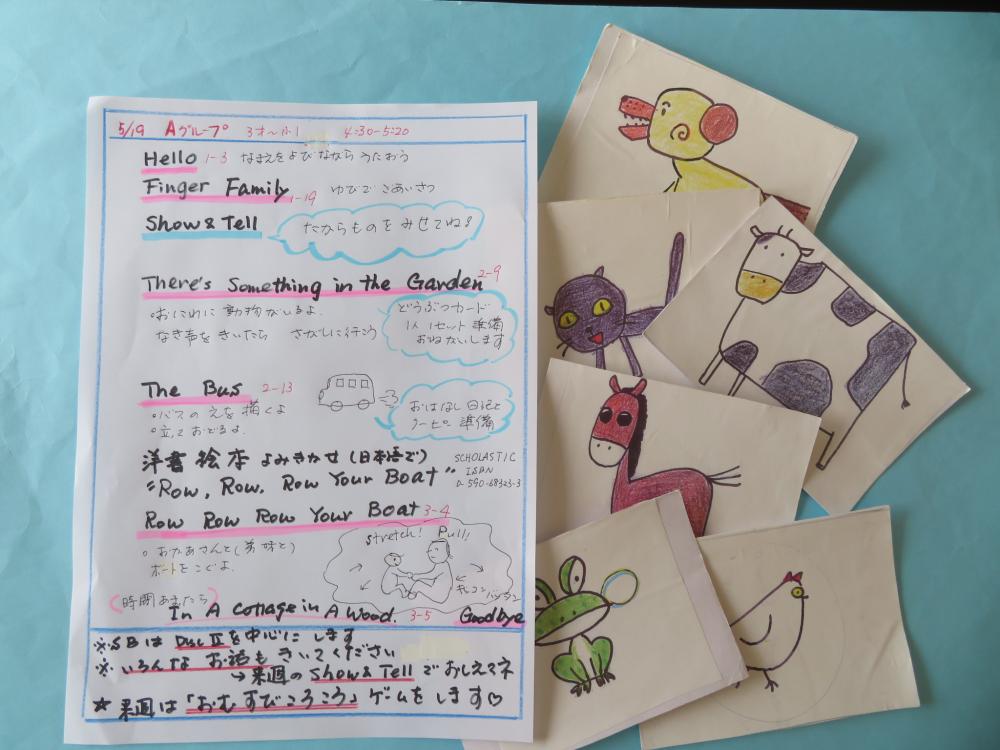 5/19 Aグループ 3才〜小1 4:30-5:20
Hello 1-3 なまえをよびながら うたおう
Finger Family 1-19 ゆびで ごあいさつ
Show & Tell たからものを みせてね!
There's Something in the Garden 2-9
○おにわに 動物がいるよ.
なき声をきいたら さがしに行こう
どうぶつカード
1人1セット 準備
おねがいします
The Bus 2-13
○バスの えを 描くよ
○立っておどるよ.
おはなし日記と
準備
洋書 絵本 よみきかせ(日本語で)
"Row, Row, Row Your Boat"
SCHOLASTIC
ISBN
0-590-68323-3
Row Row Row Your Boat 3-4
○おかあさんと(弟妹と)
ボートをこぐよ.
Stretch! Pull!
ギッコン バッタン
(時間あまったら)
In A Cottage in A Wood. 3-5 Goodbye
※SBは Disc IIを中心に します
※いろんな お話も きいてください
→来週の Show & Tell で おしえてネ
★来週は「おむすびころころ」ゲームをします♡